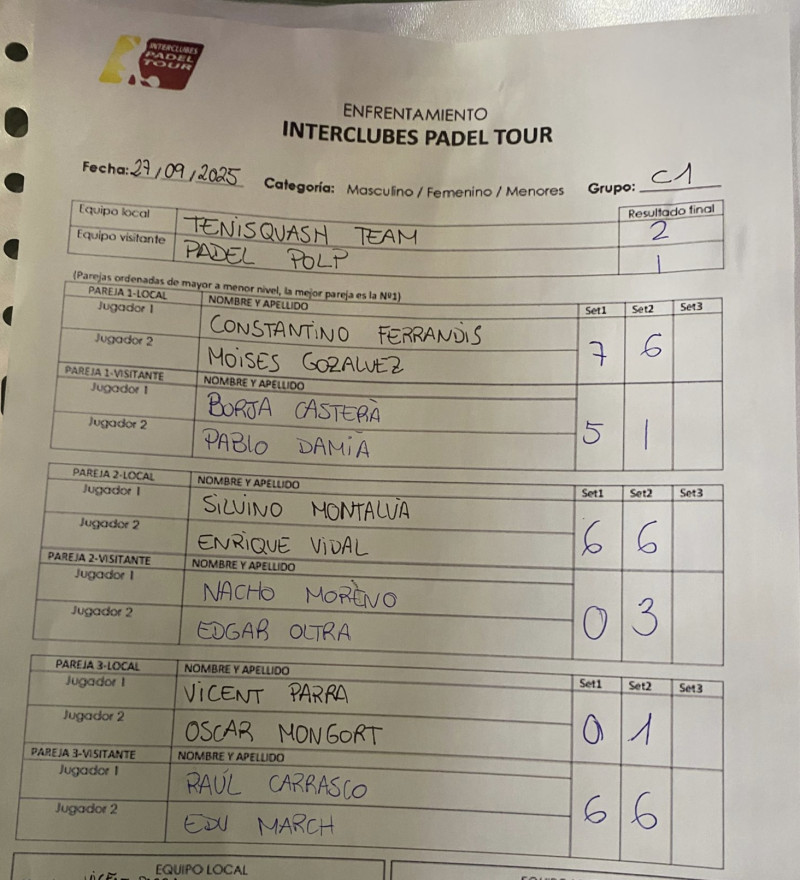 INTERCLUBES
PADEL
TOUR
ENFRENTAMIENTO
INTERCLUBES PADEL TOUR
Fecha: 27/09/2025 Categoría: Masculino / Femenino / Menores Grupo: C1
Equipo local TENISQUASH TEAM Resultado final 2
Equipo visitante PADEL POLP 1
(Parejas ordenadas de mayor a menor nivel, la mejor pareja es la Nº1)
PAREJA 1-LOCAL NOMBRE Y APELLIDO Set1 Set2 Set3
Jugador 1 CONSTANTINO FERRANDIS
Jugador 2 MOISES GOZALVEZ 7 6
PAREJA 1-VISITANTE NOMBRE Y APELLIDO
Jugador 1 BORJA CASTERÀ
Jugador 2 PABLO DAMIÀ 5 1
PAREJA 2-LOCAL NOMBRE Y APELLIDO Set1 Set2 Set3
Jugador 1 SILVINO MONTALVÀ
Jugador 2 ENRIQUE VIDAL 6 6
PAREJA 2-VISITANTE NOMBRE Y APELLIDO
Jugador 1 NACHO MORENO
Jugador 2 EDGAR OLTRA 0 3
PAREJA 3-LOCAL NOMBRE Y APELLIDO Set1 Set2 Set3
Jugador 1 VICENT PARRA
Jugador 2 OSCAR MONGORT 0 1
PAREJA 3-VISITANTE NOMBRE Y APELLIDO
Jugador 1 RAÚL CARRASCO
Jugador 2 EDU MARCH 6 6
EQUIPO LOCAL